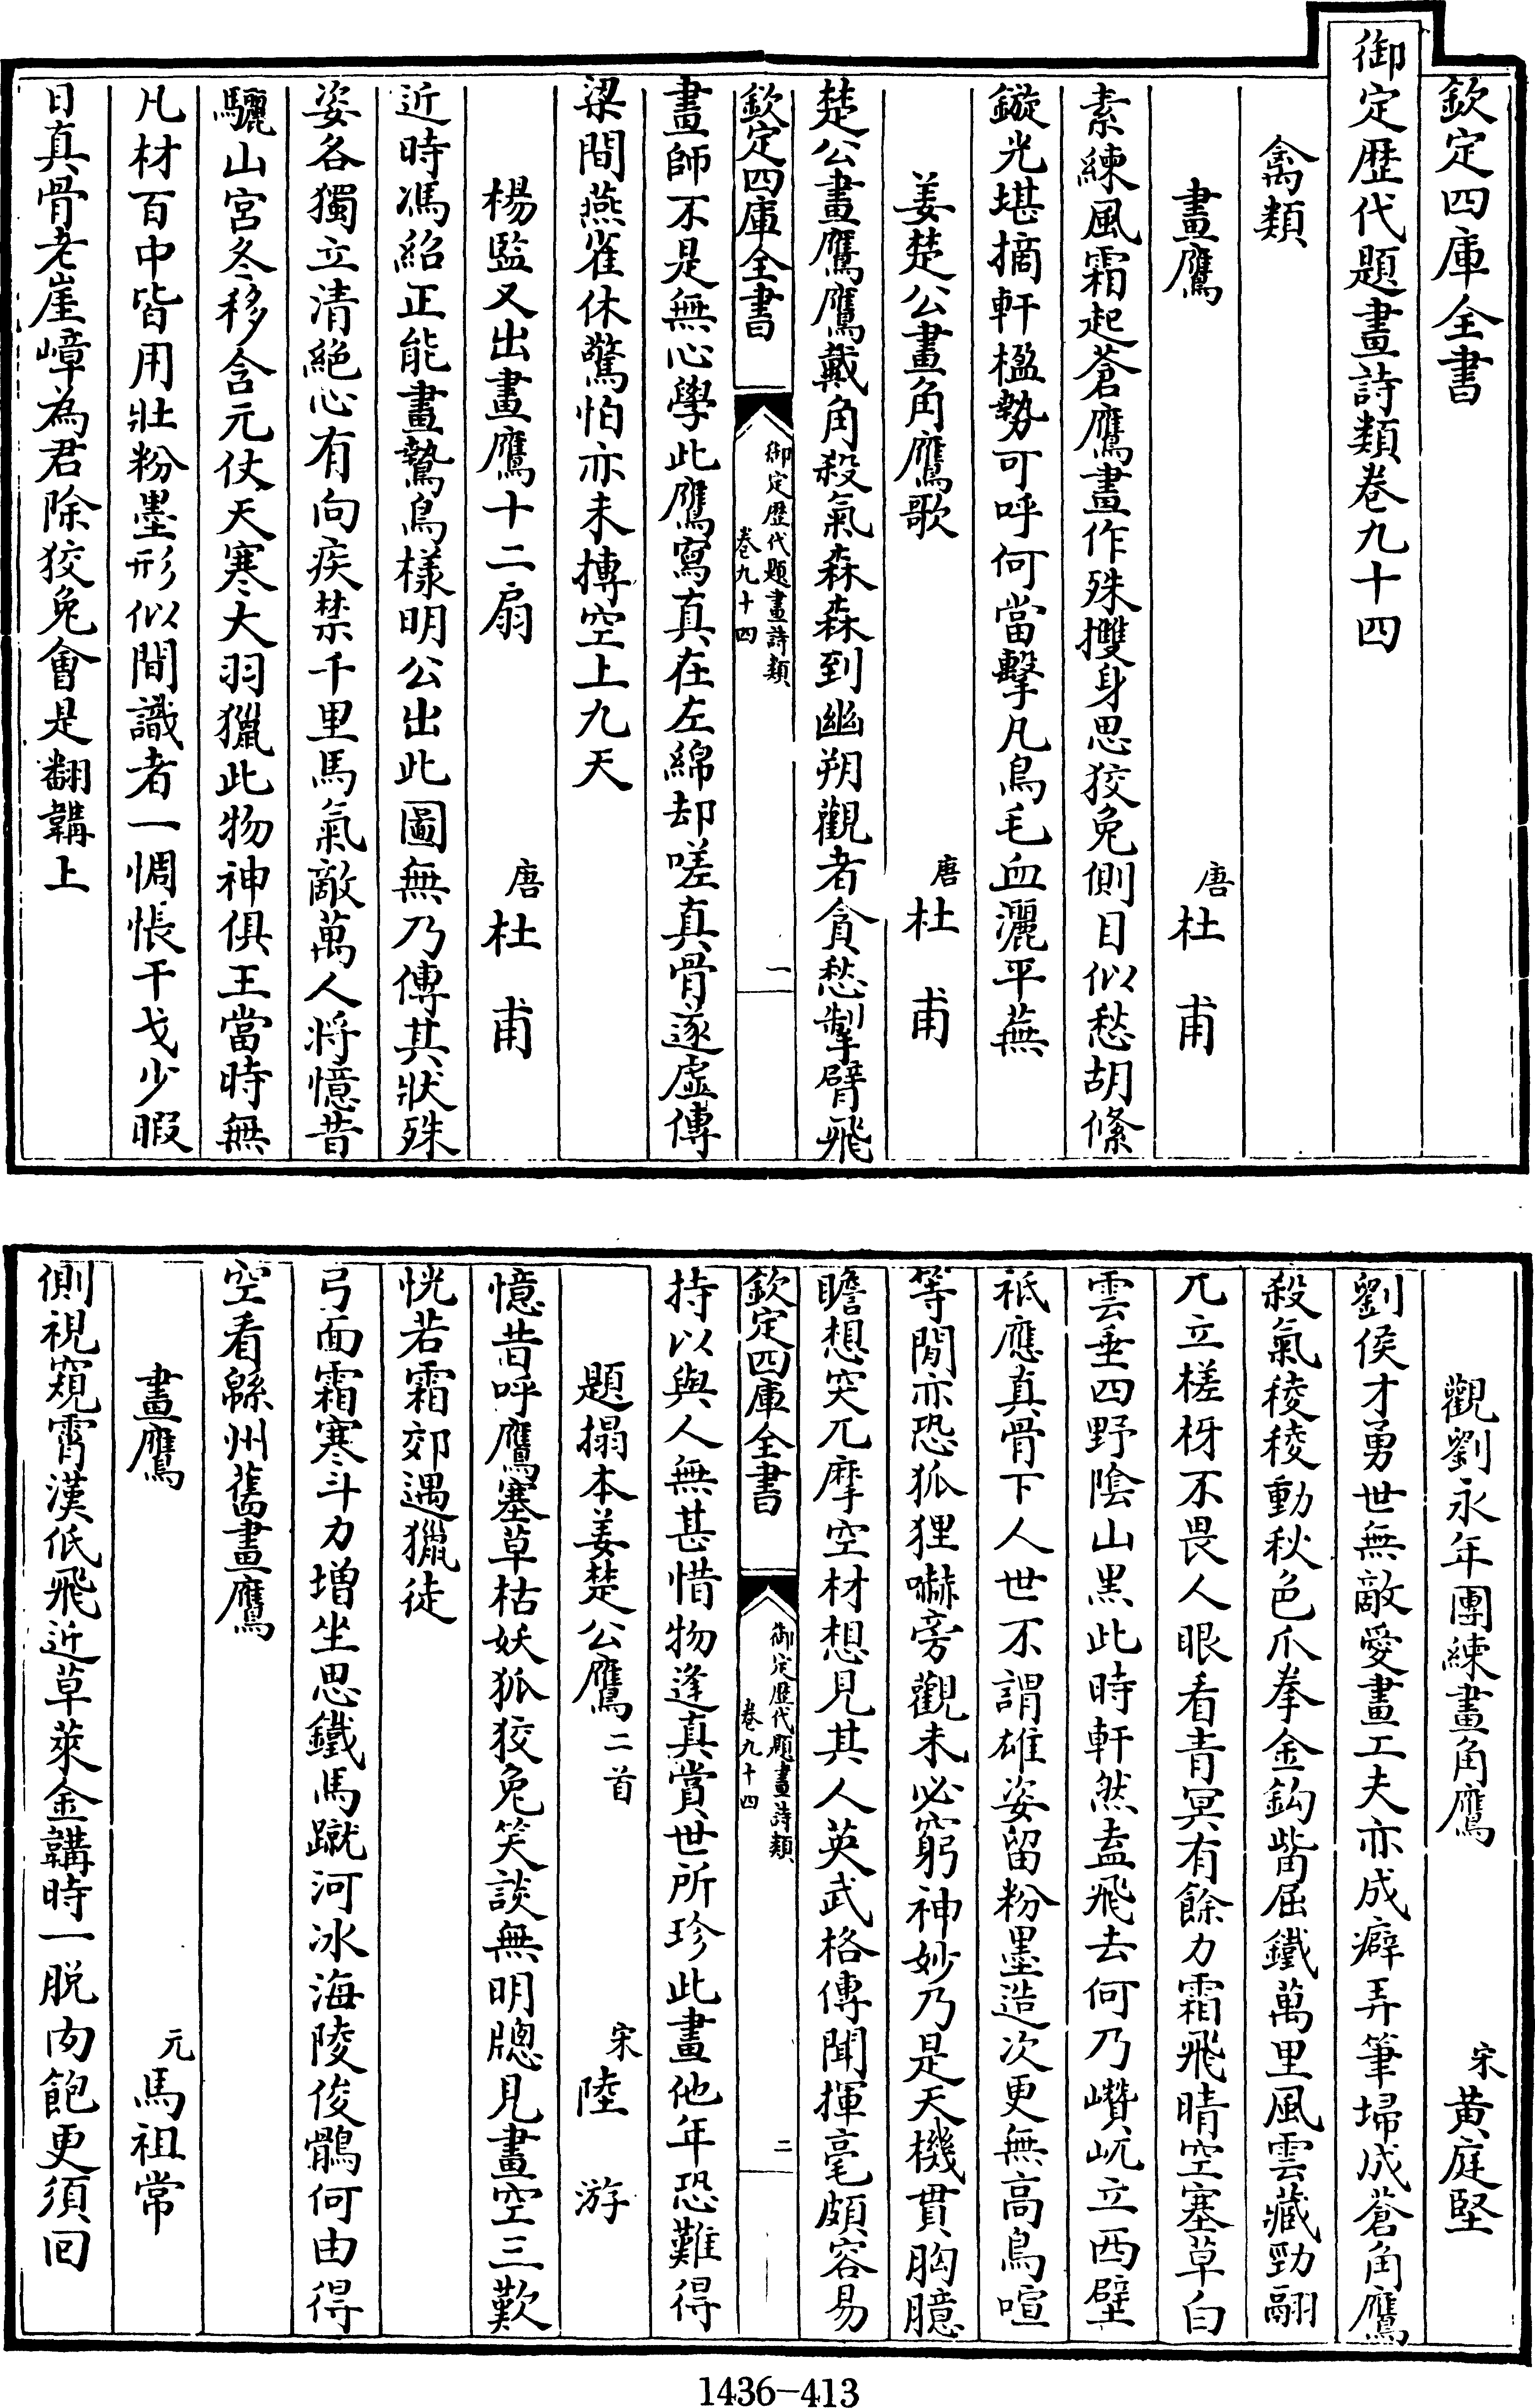 欽定四庫全書
御定歴代題畫詩類卷九十四
禽類
畫鷹　唐杜甫
素練風霜起蒼鷹畫作殊㩳身思狡兔側目似愁胡絛
鏇光堪摘軒楹勢可呼何當擊凡鳥毛血灑平蕪
姜楚公畫角鷹歌　唐杜甫
楚公畫鷹鷹戴角殺氣森森到幽朔觀者貪愁掣臂飛
欽定四庫全書　御定歴代題畫詩類卷九十四　一
畫師不是無心學此鷹寫真在左綿却嗟真骨遂虛傳
梁間燕雀休驚怕亦未摶空上九天
楊監又出畫鷹十二扇　唐杜甫
近時馮紹正能畫鷙鳥樣明公出此圖無乃傳其狀殊
姿各獨立清絶心有向疾禁千里馬氣敵萬人將憶昔
驪山宮冬移含元仗天寒大羽獵此物神俱王當時無
凡材百中皆用壯粉墨形似間識者一惆悵干戈少暇
日真骨老崖嶂為君除狡兔會是翻韝上
觀劉永年團練畫角鷹　宋黃庭堅
劉侯才勇世無敵愛畫工夫亦成癖弄筆埽成蒼角鷹
殺氣稜稜動秋色爪拳金鈎觜屈鐵萬里風雲藏勁翮
兀立槎枒不畏人眼看青冥有餘力霜飛晴空塞草白
雲垂四野陰山黑此時軒然盍飛去何乃巑岏立西壁
祇應真骨下人世不謂雄姿留粉墨造次更無高鳥喧
等閒亦恐狐狸嚇旁觀未必窮神妙乃是天機貫胸臆
瞻想突兀摩空材想見其人英武格傳聞揮毫頗容易
欽定四庫全書　御定歴代題畫詩類卷九十四　二
持以與人無甚惜物逢真賞世所珍此畫他年恐難得
題搨本姜楚公鷹二首　宋陸游
憶昔呼鷹塞草枯妖狐狡兔笑談無明牎見畫空三歎
恍若霜郊遇獵徒
弓面霜寒斗力增坐思鐵馬蹴河冰海陵俊鶻何由得
空看緜州舊畫鷹
畫鷹　元馬祖常
側視窺霄漢低飛近草萊金韝時一脱肉飽更須回
1436-413